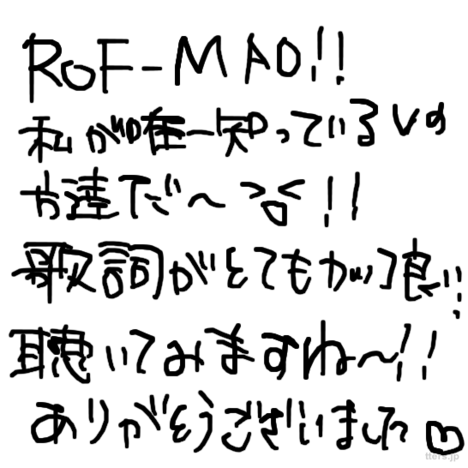 ROF-MAO!!
私が唯一知っているVの
方達だ〜><!!
歌詞がとてもカッコ良い!!
聴いてみますね〜!!
ありがとうございました♡